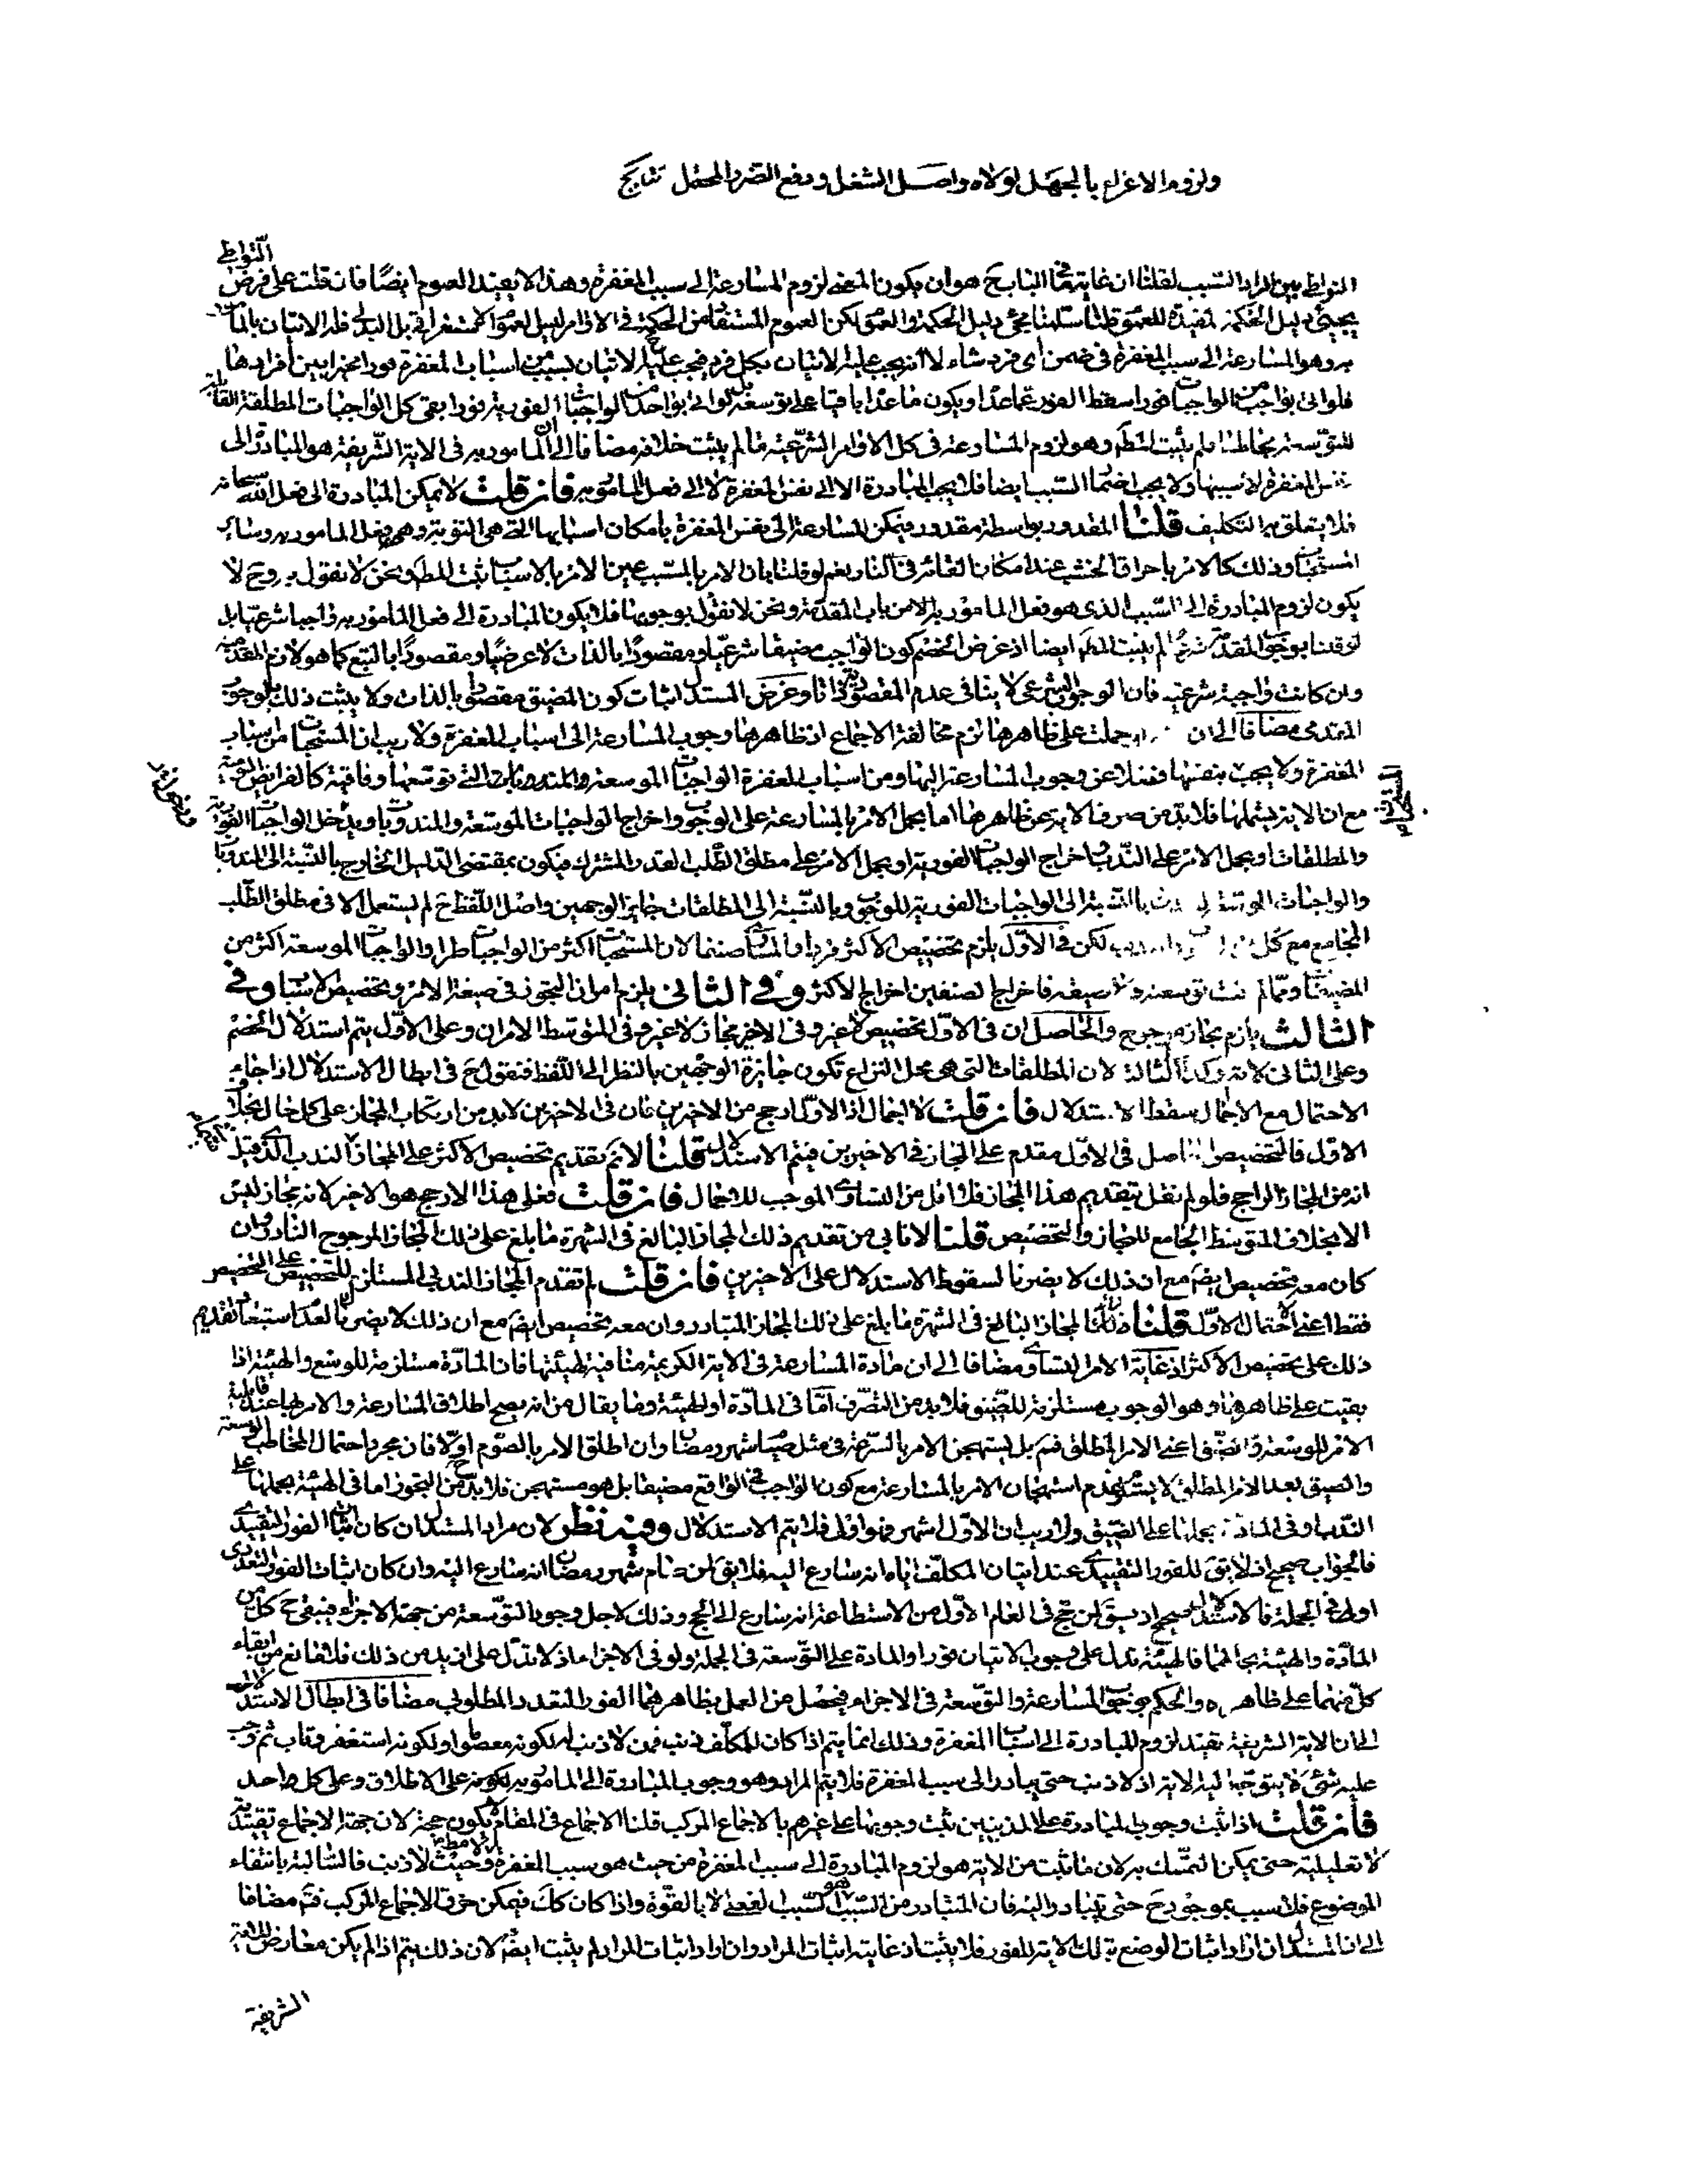 ولزوم الاغراء بالجهل لولاه واصل الشغل ودفع الضرر المحتمل نتايج
التواطى
التواطى بين المراد السبب لقلنا ان غاية ما فى الباب ح هو ان يكون المعنى لزوم المسارعة الى سبب المغفرة وهذا لا يفيد العموم ايضا فان قلت على فرض
يجيئ دليل الحكمة لمفيدة للعموم قلنا سلمنا مجئ دليل الحكمة والعموم لكن العموم المستفاد من الحكمة فى الاوامر ليس العموم الاستغراقى بل البدلى فله الاتيان بالمامور
به وهو المسارعة الى سبب المغفرة فى ضمن اى فرد شاء لا انه يجب عليه الاتيان بكل فرد فيجب عليه ح الاتيان بسبب من اسباب المغفرة فورا مخيرا بين افرادها
فلو اتى بواجب من الواجبات فورا سقط الفور عما عداه ويكون ما عداه باقيا على توسعته بل لو اتى بواحد من الواجبات الفورية فورا بقى كل الواجبات المطلقة القابلة
للتوسعة بحالها فلم يثبت المط وهو لزوم المسارعة فى كل الاوامر الشرعية ما لم يثبت خلافه مضافا الى ان المامور به فى الاية الشريفة هو المبادرة الى
نفس المغفرة لا سببها ولا يجب اضمار السبب ايضا فلا يجب المبادرة الا الى نفس المغفرة لا الى فعل المامور به فان قلت لا يمكن المبادرة الى فعل الله سبحانه
فلا يتعلق به التكليف قلنا المقدور بواسطة مقدور فيمكن المسارعة الى نفس المغفرة بامكان اسبابها التى هى التوبة وفعل المامور به وساير
المستحبات وذلك كالامر باحراق الخشب عند امكان القائه فى النار نعم لو قلنا بان الامر بالمسبب عين الامر بالاسباب ثبت المط ونحن لا نقول به وح لا
يكون لزوم المبادرة الى السبب الذى هو فعل المامور به الا من باب المقدمة ونحن لا نقول بوجوبها فلا يكون المبادرة الى فعل المامور به واجبا شرعيا بل
لو قلنا بوجوب المقدمة شرعا لم يثبت المط ايضا اذ غرض الخصم كون الواجب مضيقا شرعيا ومقصودا بالذات لا عرضيا ومقصودا بالتبع كما هو لازم المقدمة
وان كانت واجبة شرعية فان الوجوب الشرعى لا ينافى عدم المقصودية ذاتا وغرض المستدل اثبات كون المضيق مقصودا بالذات ولا يثبت ذلك بوجوب
المقدمى مضافا الى ان حملت على ظاهرها لزم مخالفة الاجماع اذ ظاهرها وجوب المسارعة الى اسباب المغفرة ولا ريب ان المستحبات من اسباب
المغفرة ولا يجب بنفسها فضلا عن وجوب المسارعة اليها ومن اسباب المغفرة الواجبات الموسعة والمندوبات التى توسعتها وفاقية كالفرائض
مع ان الاية يشملها فلا بد من صرف الاية عن ظاهرها اما بحمل الامر بالمسارعة على الوجوب واخراج الواجبات الموسعة والمندوبات ويدخل الواجبات الفورية
والمطلقات او بحمل الامر على الندب باخراج الواجبات الفورية او بحمل الامر على مطلق الطلب القدر المشترك فيكون بمقتضى الدليل الخارج بالنسبة الى المندوبات
والواجبات الموسعة بالنسبة الى الواجبات الفورية للوجوب وبالنسبة الى المطلقات جايز الوجهين واصل اللفظ ح لم يستعمل الا فى مطلق الطلب
المجامع مع كل لكن فى الاول يلزم تخصيص الاكثر فردا والمساوى صنفا لان المستحبات اكثر من الواجبات طرا والواجبات الموسعة اكثر من
المضيقات ومما لم يثبت توسعته ولا ضيقه فاخراج الصنفين اخراج الاكثر وفى الثانى يلزم امران التجوز فى صيغة الامر وتخصيص الاسباب وفى
الثالث يلزم مجاز مرجوح والحاصل ان فى الاول تخصيص لا غير وفى الاخير مجاز لا غير وفى المتوسط الامران وعلى الاول يتم استدلال الخصم
وعلى الثانى لا يتم وكذا الثالث لان المطلقات التى هى محل النزاع تكون جايزة الوجهين بالنظر الى اللفظ فنقول ح فى ابطال الاستدلال اذا جاء
الاحتمال مع الاجمال سقط الاستدلال فان قلت لا اجمال اذ الاول ارجح من الاخيرين فان فى الاخيرين لا بد من ارتكاب المجاز على كل حال بخلاف
الاول فالتخصيص الحاصل فى الاول مقدم على المجاز فى الاخيرين فيتم الاستدلال قلنا لا نم تقديم تخصيص الاكثر على المجاز الندب الذى قيل
انه من المجاز الراجح فلو لم نقل بتقديم هذا المجاز فلا اقل من التساوى الموجب للاجمال فان قلت فعلى هذا الارجح هو الاخير لانه مجاز ليس
الا بخلاف المتوسط الجامع للمجاز والتخصيص قلنا لا نابى من تقديم ذلك المجاز البالغ فى الشهرة ما بلغ على ذلك المجاز المرجوح النادر وان
كان معه تخصيص ايضا مع ان ذلك لا يضرنا لسقوط الاستدلال على الاخيرين فان قلت لم تقدم المجاز الندبى المستلزم للتخصيص على التخصيص
فقط اعنى احتمال الاول قلنا المجاز البالغ فى الشهرة ما بلغ على ذلك المجاز المتبادر وان معه تخصيص ايضا مع ان ذلك لا يضر بنا لعدم استبعاد تقديم
ذلك على تخصيص الاكثر اذ غاية الامر التساوى مضافا الى ان مادة المسارعة فى الاية الكريمة منافية لهيئتها فان المادة مستلزمة للوسع والهيئة اذا
بقيت على ظاهرها وهو الوجوب مستلزمة للضيق فلا بد من التصرف اما فى المادة او الهيئة وما يقال من انه يصح اطلاق المسارعة والامر بها عند قابلية
الامر للوسعة والضيق اعنى الامر المطلق فيه بل يستهجن الامر بالسرعة فى مثل صيام شهر رمضان وان اطلق الامر بالصوم اولا فان مجرد احتمال المخاطب الوسعة
والضيق بعد الامر المطلق لا يستلزم عدم استهجان الامر بالمسارعة مع كون الواجب فى الواقع مضيقا بل هو مستهجن فلا بد ح من التجوز اما فى الهيئة بحملها على
الندب او فى المادة بحملها على الضيق ولا ريب ان الاول اشهر فهو اولى فلا يتم الاستدلال وفيه نظر لان مراد المستدل ان كان اثبات الفور التقييدى
فالجواب صحيح اذ لا يق للفور التقييدى عند اتيان المكلف اياه انه سارع اليه فلا يق لمن صام شهر رمضان انه سارع اليه وان كان اثبات الفور التعددى
اولى فى الجملة فالاستدلال صحيح اذ يق لمن حج فى العام الاول من الاستطاعة انه سارع الى الحج وذلك لاجل وجوب التوسعة من جهة الاجزاء فيبقى ح كل من
المادة والهيئة بحالهما فالهيئة تدل على وجوب الاتيان فورا والمادة على التوسعة فى الجملة ولو فى الاجزاء اذ لا تدل على ازيد من ذلك فلا مانع من ابقاء
كل منهما على ظاهره والحكم بوجوب المسارعة والتوسعة فى الاجزاء فيحصل من العمل بظاهرهما الفور التعددى المطلوب مضافا فى ابطال الاستدلال
الى ان الاية الشريفة تفيد لزوم المبادرة الى اسباب المغفرة وذلك انما يتم اذا كان للمكلف ذنب فمن لا ذنب له لكونه معصوما او لكونه استغفر وتاب ثم وجب
عليه شئ لا يتوجه اليه الاية اذ لا ذنب حتى يبادر الى سبب المغفرة فلا يتم المراد وهو وجوب المبادرة الى المامور به لكونه على الاطلاق وعلى كل واحد
فان قلت اذا ثبت وجوب المبادرة على المذنبين ثبت وجوبها على غيرهم بالاجماع المركب قلنا الاجماع فى المقام لا يكون حجة لان جهة الاجماع تقييدية
لا تعليلية حتى يمكن التمسك به لان ما ثبت من الاية هو لزوم المبادرة الى سبب المغفرة من حيث هو سبب المغفرة لا مطلقا وحيث لا ذنب فالسالبة بانتفاء
الموضوع فلا سبب بموجود ح حتى يتبادر اليه فان المتبادر من السبب هو السبب الفعلى لا بالقوة واذا كان كك فيمكن خرق الاجماع المركب فتم مضافا
الى ان المستدل ان اراد اثبات الوضع بتلك الاية للفور فلا يثبت اذ غايته اثبات المراد وان اراد اثبات المراد لم يثبت ايضا لان ذلك يتم اذا لم يكن معارض للاية
الشريفة